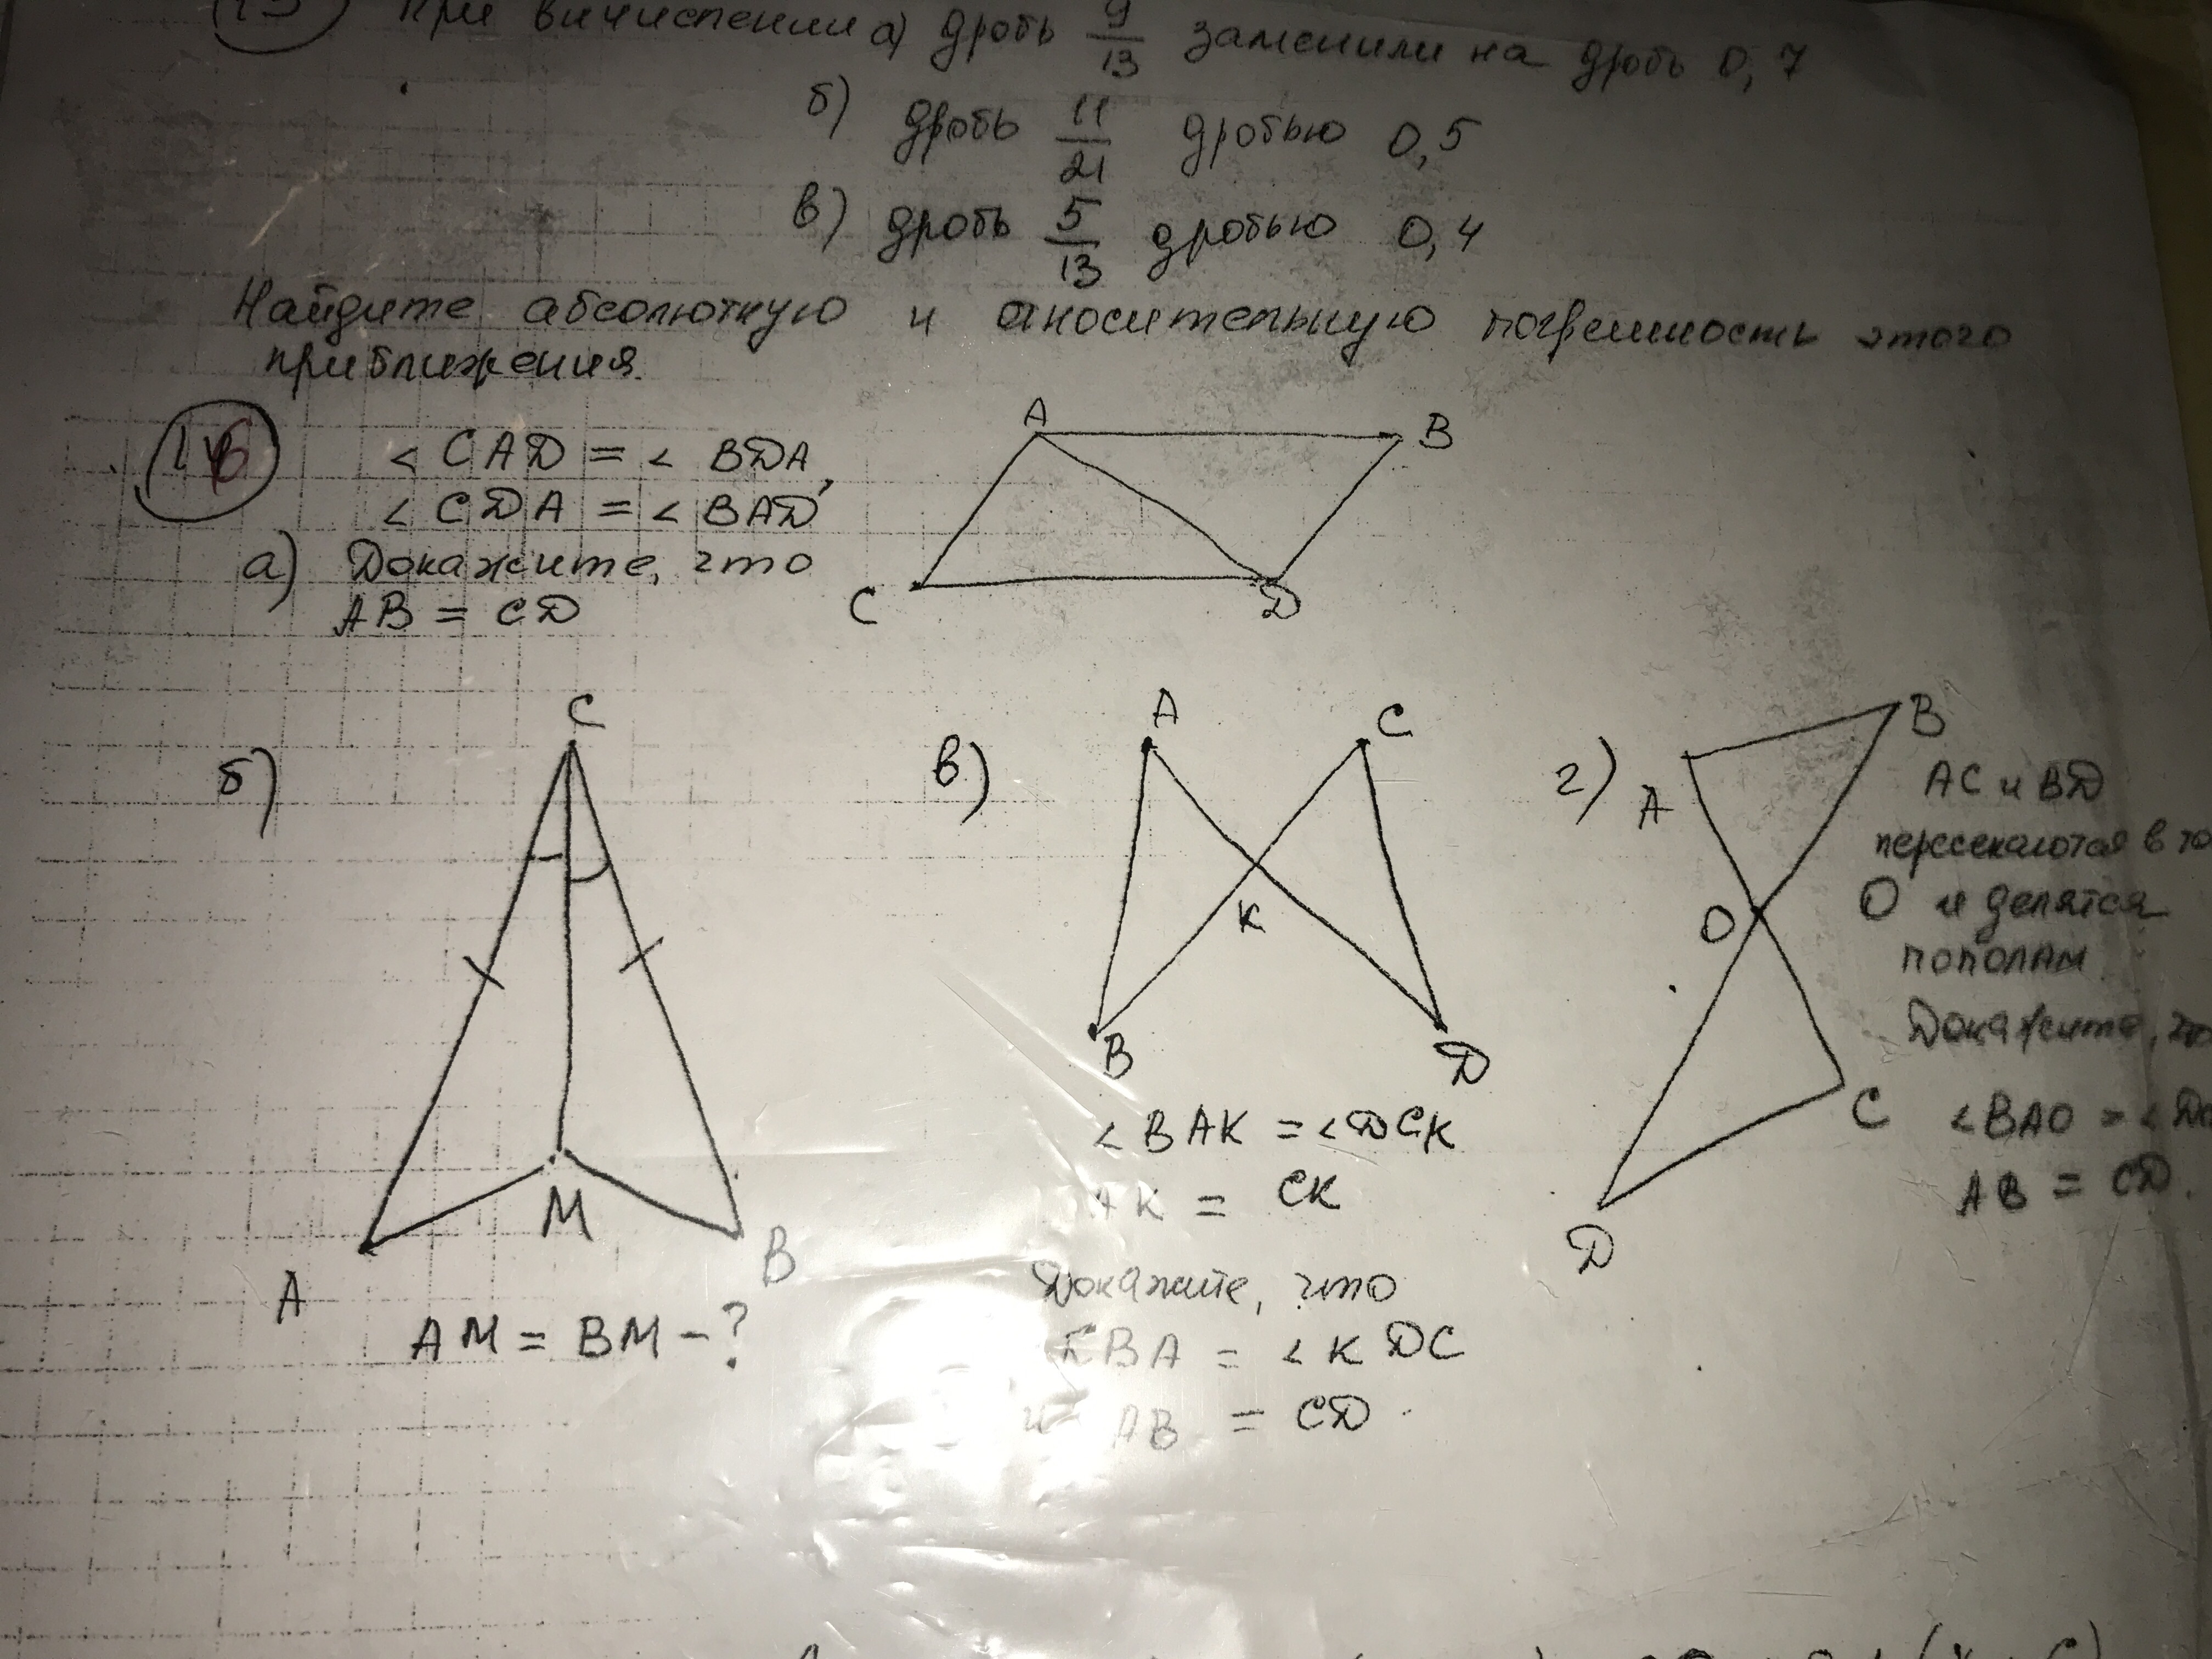 При вичислении а) дробь 9/13 заменили на дробь 0,7
б) дробь 11/21 дробью 0,5
в) дробь 5/13 дробью 0,4
Найдите абсолютную и относительную погрешность этого
приближения.
< CAD = < BDA,
< CDA = < BAD
а) Докажите, что
AB = CD
A
B
C
D
б)
C
M
A
B
AM = BM - ?
в)
A
C
K
B
D
< BAK = < DCK
AK = CK
Докажите, что
KBA = < KDC
и AB = CD.
г)
B
A
O
C
D
AC и BD
пересекаются в
O и делятся
пополам
Докажите,
< BAO = <
AB = CD.